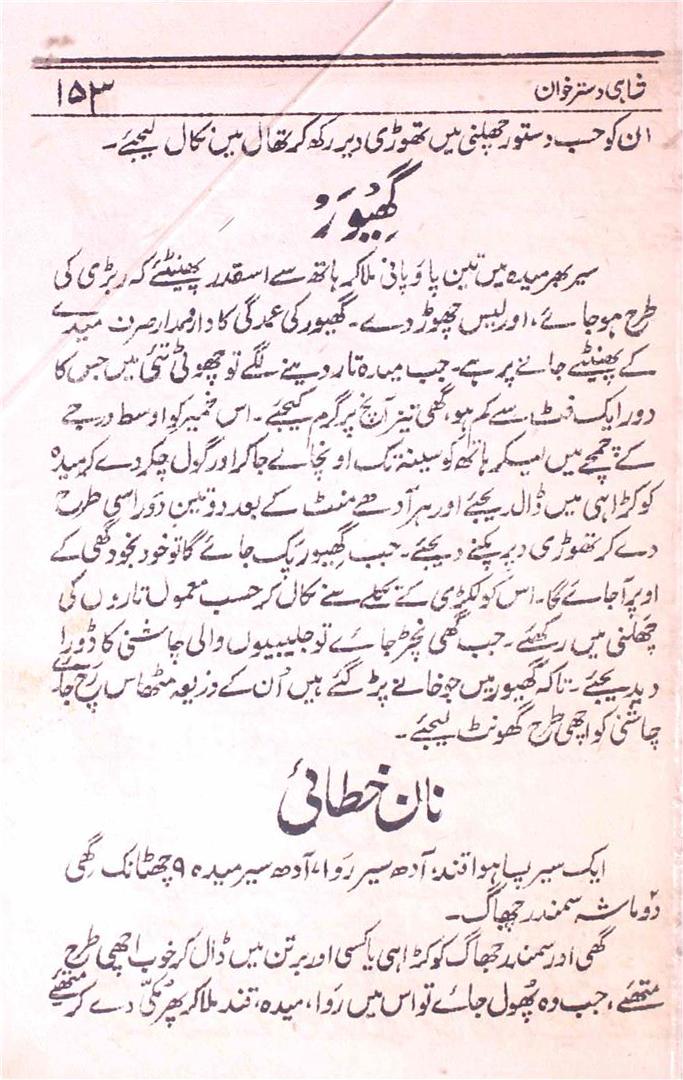 شاہی دسترخوان
۱۵۳
ان کو حسب دستور چھلنی میں تھوڑی دیر رکھ کر تھال میں نکال لیجئے۔
گھیُورَ
سیر بھر میدہ میں تین پاؤ پانی ملا کر ہاتھ سے اسقدر پھینٹئے کہ ربڑی کی
طرح ہو جائے، اور لیس چھوڑ دے۔ گھیور کی عمدگی کا دارومدار صرف میدے
کے پھینٹے جانے پر ہے۔ جب میدہ تار دینے لگے تو چھوٹی تئی میں جس کا
دور ایک فٹ سے کم ہو، گھی تیز آنچ پر گرم کیجئے۔ اس خمیر کو اوسط درجے
کے چمچے میں لیکر ہاتھ کو سینہ تک اونچا لے جا کر اور گول چکر دے کر میدہ
کو کڑاہی میں ڈال دیجئے اور ہر آدھے منٹ کے بعد دو تین دَور اسی طرح
دے کر تھوڑی دیر پکنے دیجئے۔ جب گھیور پک جائے گا تو خود بخود گھی کے
اوپر آجائے گا۔ اس کو لکڑی کے تکلے سے نکال کر حسب معمول تاروں کی
چھلنی میں رکھئے۔ جب گھی نچڑ جائے تو جلیبیوں والی چاشنی کا ڈورا
دیدیجئے۔ تاکہ گھیور میں جو خانے پڑ گئے ہیں اُن کے ذریعہ مٹھاس رَچ جائے
چاشنی کو اچھی طرح گھونٹ لیجئے۔
نان خطائی
ایک سیر پسا ہوا قند، آدھ سیر رَوا، آدھ سیر میدہ ۹ چھٹانک گھی
دو ماشہ سمندر جھاگ۔
گھی اور سمندر جھاگ کو کڑاہی یا کسی اور برتن میں ڈال کر خوب اچھی طرح
متھئے، جب وہ پھُول جائے تو اس میں رَوا، میدہ، قند ملا کر پھر مُکّی دے کر متھئے